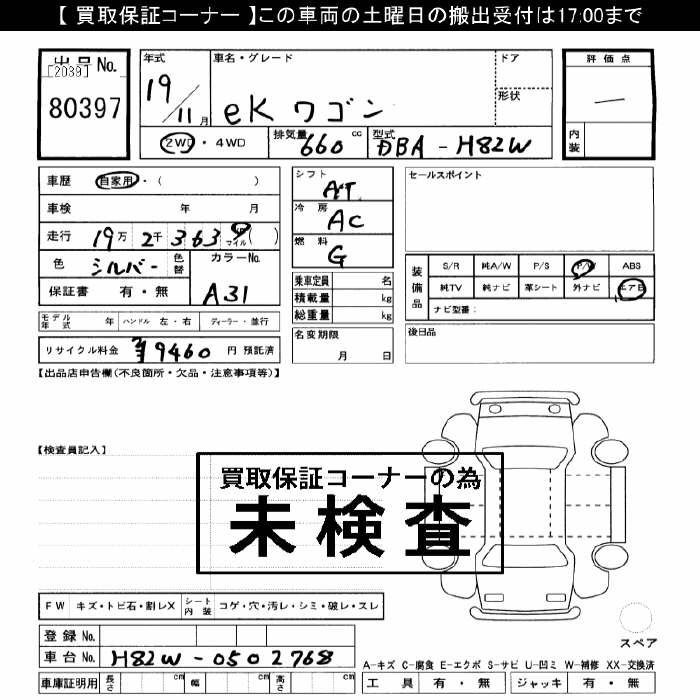 【 買取保証コーナー 】この車両の土曜日の搬出受付は17:00まで
出品No.
[2039]
80397
年式
19/11月
車名・グレード
eK ワゴン
ドア
形状
評価点
―
内装
2WD・4WD
排気量 660 cc
型式 DBA - H82W
車歴 自家用・( )
車検 年 月
走行 19万 2千 3639 マイル( )
色 シルバー 色替
カラーNo. A31
保証書 有・無
モデル年式 年 ハンドル 左・右 ディーラー・並行
リサイクル料金 ¥9460 円 預託済
シフト AT
冷房 AC
燃料 G
乗車定員 名
積載量 kg
総重量 kg
名変期限
月 日
セールスポイント
装備品
S/R 純A/W P/S P/W ABS
純TV 純ナビ 革シート 外ナビ エアB
ナビ型番:
後日品
【出品店申告欄(不良箇所・欠品・注意事項等)】
【検査員記入】
買取保証コーナーの為
未検査
FW キズ・トビ石・割レX シート内装 コゲ・穴・汚レ・シミ・破レ・スレ
登録No.
車台No. H82W-0502768
車庫証明用 長さ cm 幅 cm 高さ cm
スペア
A-キズ C-腐食 E-エクボ S-サビ U-凹ミ W-補修 XX-交換済
工具 有・無 ジャッキ 有・無